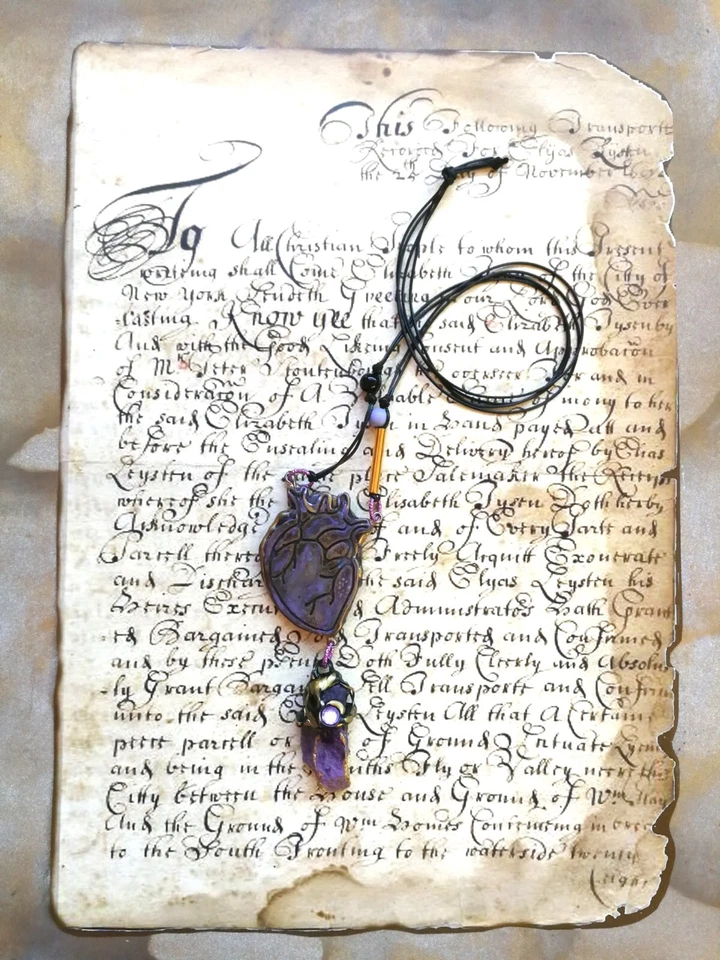 This Following Transporte
Recorded For Elyas Leysen
the 22th Day of November
To All Christian People to whom this Present
writeing shall Come Elizabeth of the City of
New York Sendeth Greeting in our Lord God Ever
-lasting. Know yee that said Elizabeth Tysen by
And with the Good Likeing Consent and Approbacon
of Mr Peter overseer and in
Consideracon of A Valuable of mony to her
the said Elizabeth Tysen in Hand payed att and
before the Ensealing and Delivery hereof by Elias
Leysten of the same place Salemaker the Receipt
whereof she the Elisabeth Tysen Doth herby
Acknowledge of and of Every Parte and
Parcell thereof Freely Acquitt Exonerate
and Discharge the said Elyas Leysten his
Heires Execut and Administrators Hath Grant
-ed Bargained Transported and Confirmed
and by these psents Doth Fully Cleerly and Absolu
-ly Grant Bargain Sell Transporte and Confirm
unto the said Leysten All that A Certaine
peece parcell or of Ground Scituate Lyeing
and being in the Smiths Fly or Valley neere this
Citty between the House and Ground of Wm
And the Ground of Wm Homes Conteineing in bred
to the South Fronting to the waterside twenty
eight